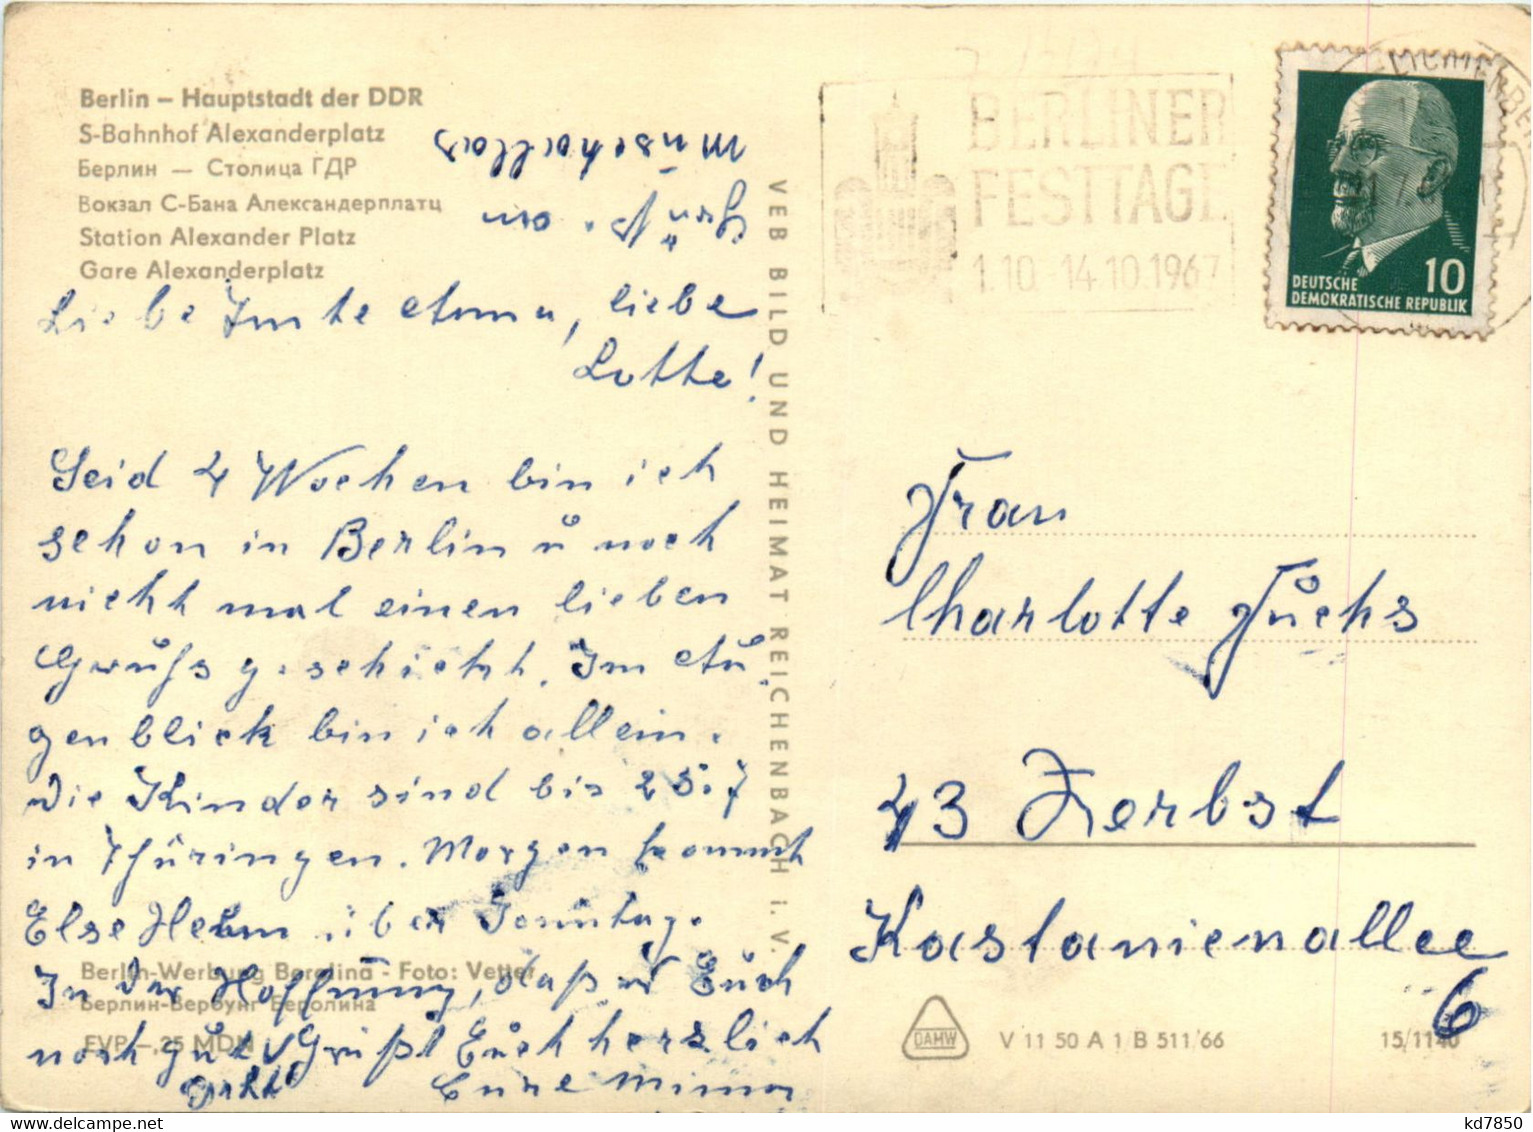 Berlin – Hauptstadt der DDR
S-Bahnhof Alexanderplatz
Берлин — Столица ГДР
Вокзал С-Бана Александерплатц
Station Alexander Platz
Gare Alexanderplatz
Liebe Tante Anna, liebe
Lotte!
Seid 4 Wochen bin ich
schon in Berlin u noch
nicht mal einen lieben
Gruß geschickt. Im Au
genblick bin ich allein.
Die Kinder sind bis 25.7
in Thüringen. Morgen kommt
Else Helm über Sonntag.
In der Hoffnung, daß Euch
noch gut Grüßt Euch herzlich
geht
Eure Minna
Gruß an
Berlin-Werbung Berolina - Foto: Vetter
Берлин-Вербунг Беролина
EVP –,25 MDN
VEB BILD UND HEIMAT REICHENBACH I. V.
BERLINER
FESTTAGE
1.10.-14.10.1967
DEUTSCHE
DEMOKRATISCHE REPUBLIK
10
Frau
Charlotte Fuchs
43 Zerbst
Kastanienallee
6
DAMW
V 11 50 A 1/B 511/66
15/1140
kd7850